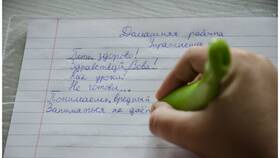 Домашняя работа
Упражнение
Петя здорово!
Здравствуй, Вова!
Как уроки?
Не готовы...
Понимаешь, вредный
Заниматься не даёт